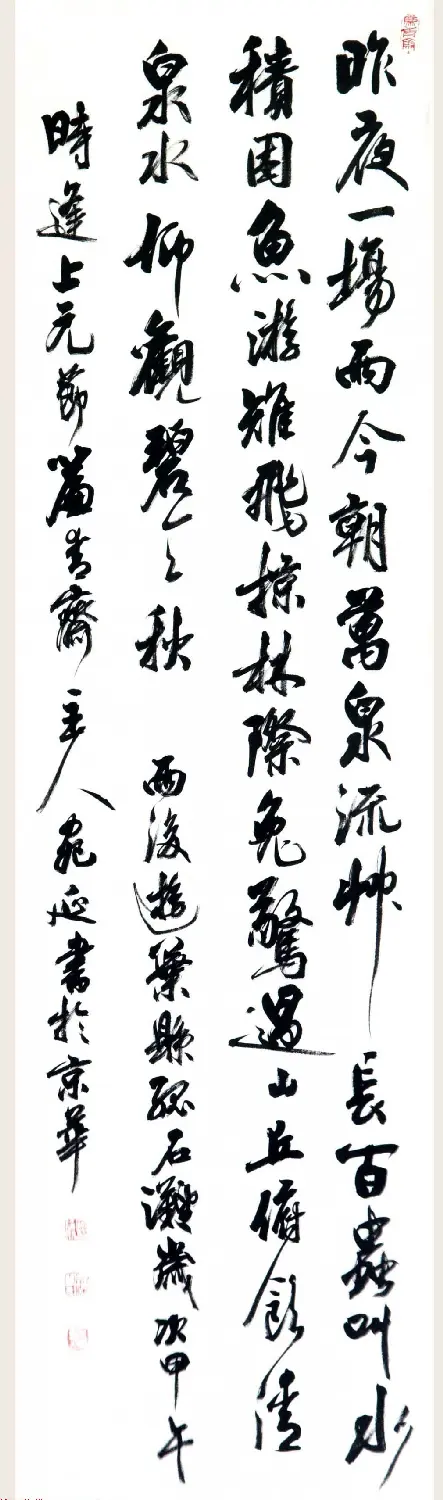 昨夜一場雨今朝萬泉流艸長百蟲叫水
積困魚游雉飛掠林際兔驚過山丘俯飲清
泉水仰觀碧云秋 雨後遊葉縣孤石灘歲次甲午
時逢上元節 青齋主人 延書於京華